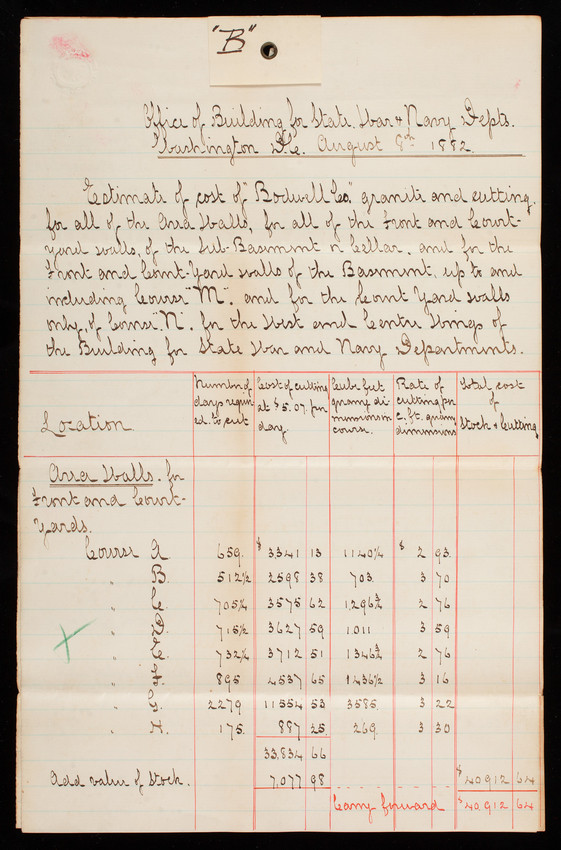 "B"
Office of Building for State, War & Navy Depts.
Washington D.C. August 8th 1882.
Estimate of cost of "Bodwell Co" granite and cutting,
for all of the Area Walls, for all of the Front and Court-
yard walls, of the Sub-Basement or Cellar, and for the
Front and Court-Yard walls of the Basement, up to and
including Course "M", and for the Court Yard walls
only, of Course "N", for the West and Centre Wings of
the Building for State War and Navy Departments.
Location
Number of days requir-ed to cut
Cost of cutting at $5.07 per day.
Cube feet quarry di-mensions in course.
Rate of cutting per c. ft. quarry dimensions
Total cost of Stock & Cutting
Area Walls, for
Front and Court-
Yards.
Course A 659. $3341 13 1140¼ $2 93.
" B. 512½ 2598 38 703. 3 70
" C. 705¼ 3575 62 1296¾ 2 76
" D. 715½ 3627 59 1.011 3 59
" E. 732¼ 3712 51 1346¾ 2 76
" F. 895 4537 65 1436½ 3 16
" G. 2279 11554 53 3585. 3 22
" H. 175. 887 25. 269. 3 30
33,834 66
Add value of Stock. 7,077 98 $40,912 64
Carry forward $40,912 64